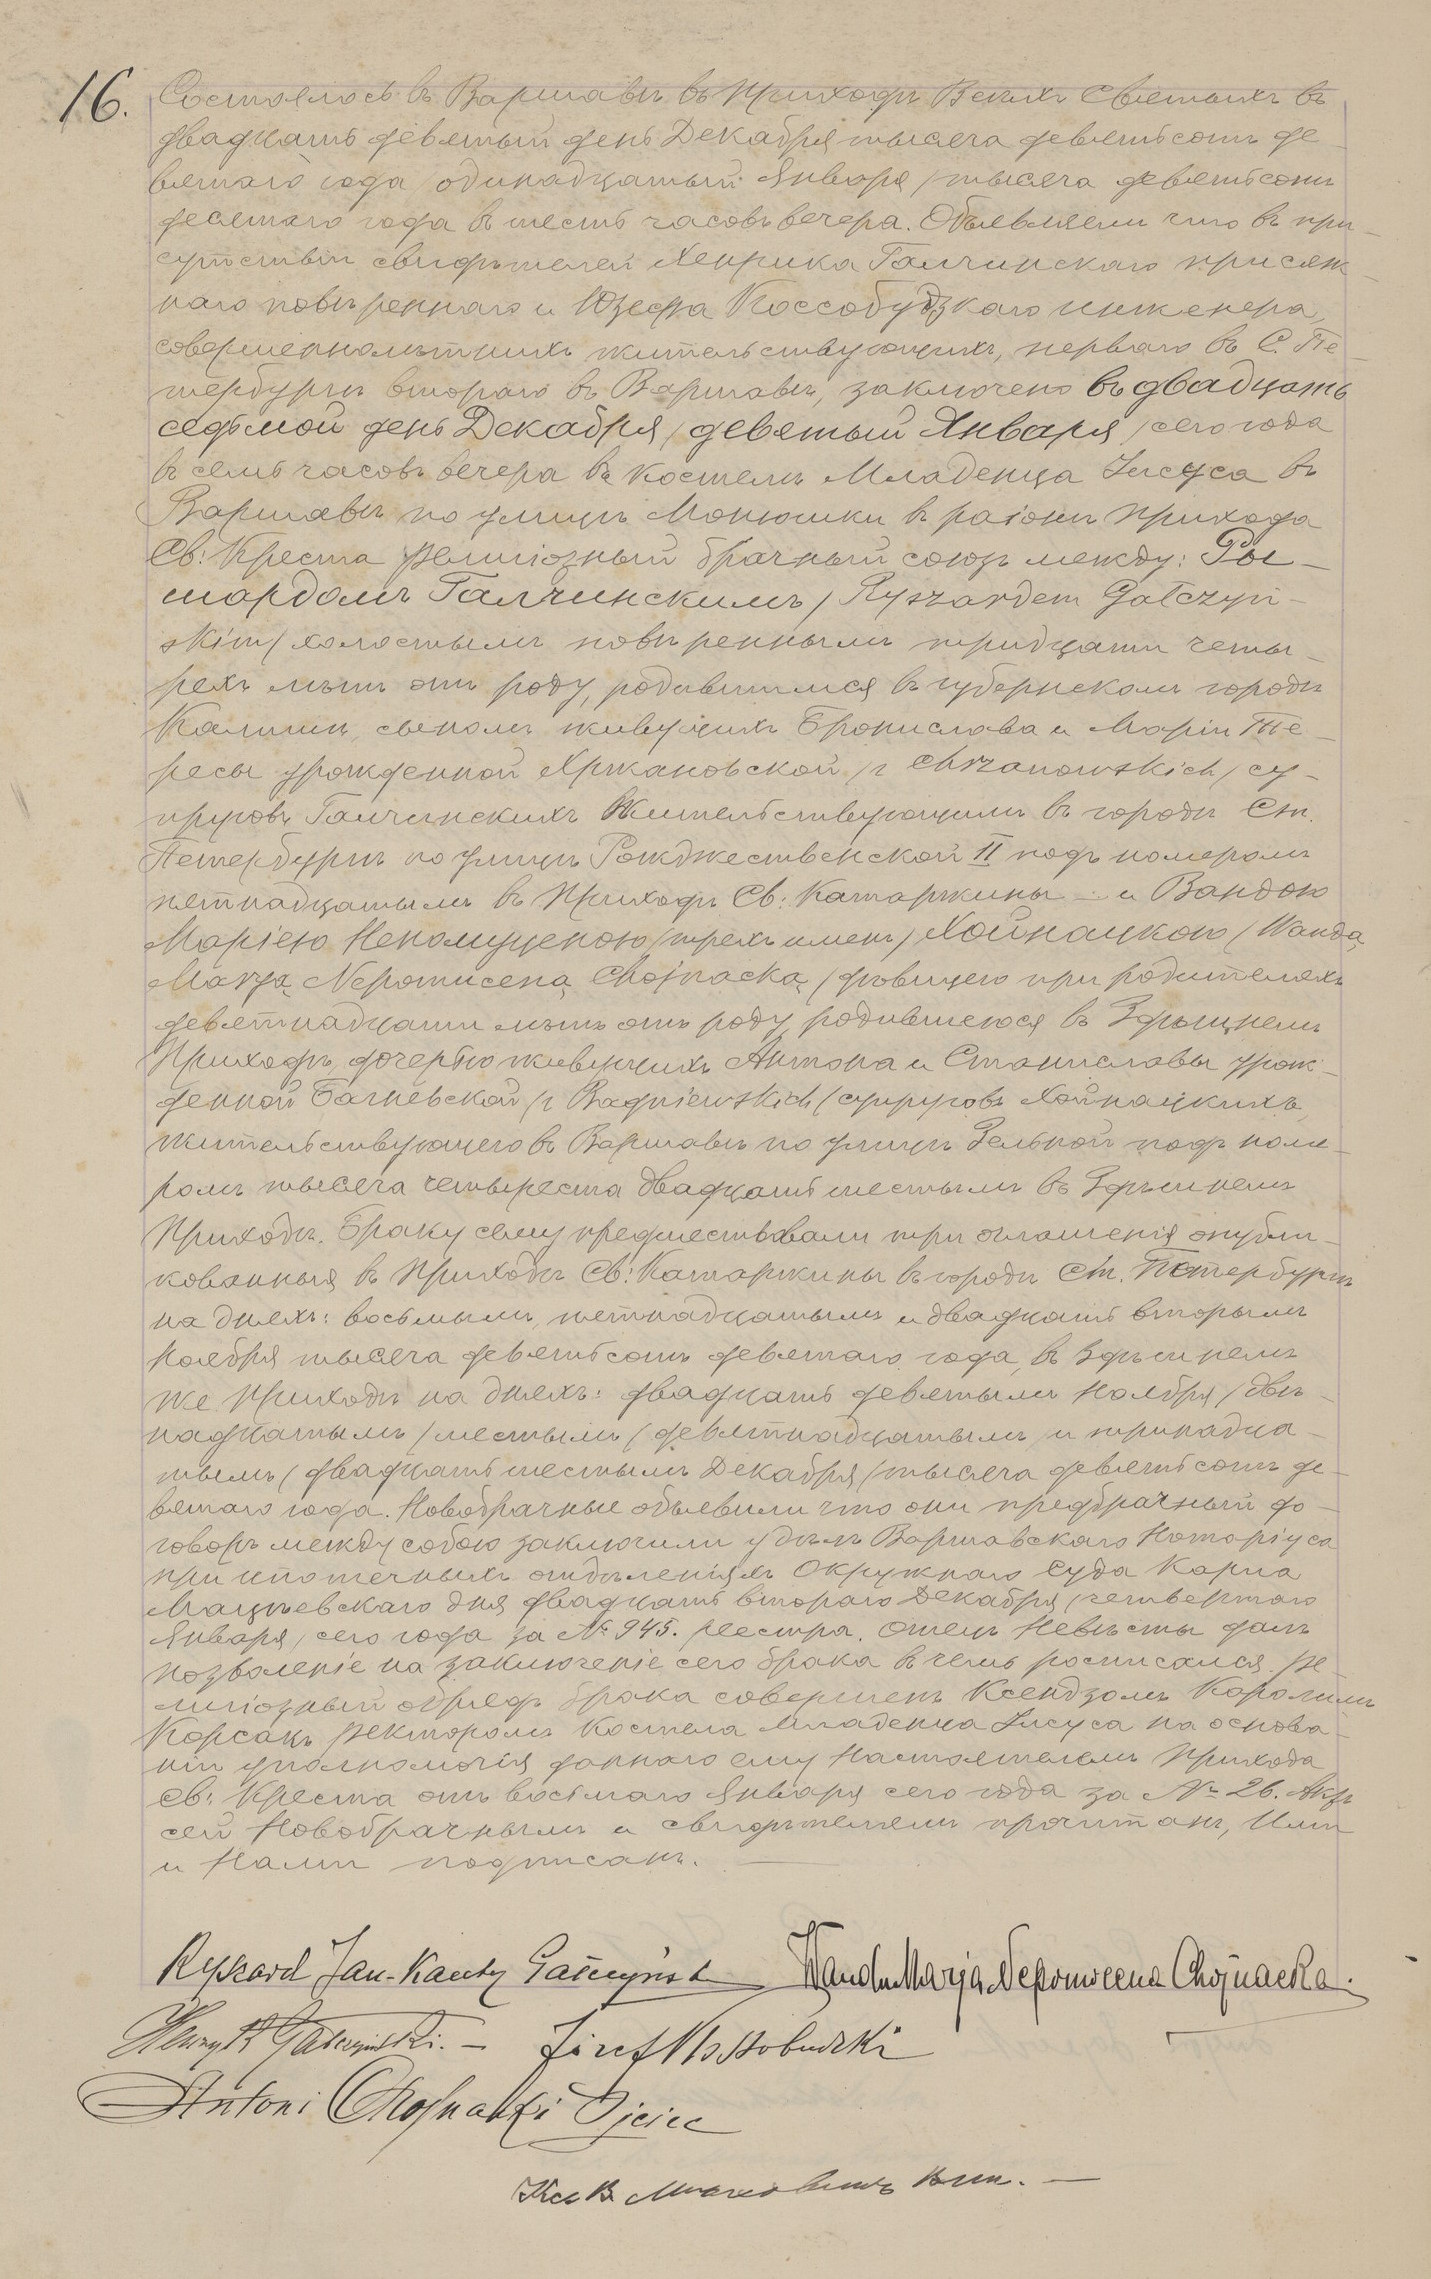 16.
Состоялось въ Варшавѣ въ Приходѣ Всѣхъ Святыхъ въ
двадцать девятый день Декабря тысяча девятьсотъ де
вятаго года /одинадцатый Января/ тысяча девятьсотъ
десятаго года въ шесть часовъ вечера. Объявляемъ что въ при-
сутствіи свидѣтелей Хенрика Галчинскаго присяж-
наго повѣреннаго и Юзефа Коссобудзкаго инженера,
совершеннолѣтнихъ жительствующихъ, перваго въ С. Пе-
тербургѣ втораго въ Варшавѣ, заключено въ двадцать
седьмой день Декабря /девятый Января/ сего года
въ семь часовъ вечера въ костелѣ Младенца Іисуса въ
Варшавѣ по улицѣ Монюшки въ раіонѣ Прихода
Св: Креста религіозный брачный союзъ между: Ры-
шардомъ Галчинскимъ /Ryszardem Gałczyń-
skim/ холостымъ повѣреннымъ тридцати четы-
рехъ лѣтъ отъ роду, родившимся въ губернскомъ городѣ
Калишѣ, сыномъ живущихъ Бронислава и Маріи Те-
ресы урожденной Хржановской /z Chrzanowskich/ су-
пруговъ Галчинскихъ жительствующимъ въ городѣ Ст.
Петербургѣ по улицѣ Рожджественской II подъ номеромъ
пятнадцатымъ въ Приходѣ Св: Катаржины — и Вандою
Маріею Непомуценою /трехъ именъ/ Хойнацкою /Wandą
Marją Nepomuceną Chojnacką/ дѣвицею при родителяхъ
девятнадцати лѣтъ отъ роду, родившеюся въ Здѣшнемъ
Приходѣ, дочерью живущихъ Антона и Станиславы урож-
денной Багневской /z Bagniewskich/ супруговъ Хойнацкихъ,
жительствующего въ Варшавѣ по улицѣ Зельной подъ номе-
ромъ тысяча четыреста двадцать шестымъ въ Здѣшнемъ
Приходѣ. Браку сему предшествовали три оглашенія опубли-
кованныя въ Приходѣ Св: Катаржины въ городѣ Ст. Петербургѣ
на дняхъ: восьмымъ, пятнадцатымъ и двадцать вторымъ
Ноября тысяча девятьсотъ девятаго года, въ Здѣшнемъ
же Приходѣ на дняхъ: двадцать девятымъ Ноября /двѣ-
надцатымъ/ шестымъ /девятнадцатымъ/ и тринадца-
тымъ /двадцать шестымъ Декабря/ тысяча девятьсотъ де-
вятаго года. Новобрачные объявили что они предбрачный до-
говоръ между собою заключили у дѣлъ Варшавскаго Нотаріуса
при ипотечныхъ отдѣленіяхъ Окружнаго Суда Карла
Мацѣевскаго дня двадцать втораго Декабря /четвертаго
Января/ сего года за № 945. реестра. Отецъ Невѣсты далъ
позволеніе на заключеніе сего брака въ чемъ росписался. Ре-
лигіозный обрядъ брака совершенъ Ксендзомъ Каролемъ
Корсакъ Ректоромъ Костела Младенца Іисуса на основа-
ніи уполномочія даннаго ему Настоятелемъ Прихода
Св: Креста отъ восьмаго Января сего года за № 26. Актъ
сей Новобрачнымъ и свидѣтелямъ прочитанъ, Ими
и Нами подписанъ. —
Ryszard Jan-Kanty Gałczyński Wanda Marja Nepomucena Chojnacka.
Henryk Gałczyński. — Józef Kossobudzki
Antoni Chojnacki Ojciec
Кс. В.